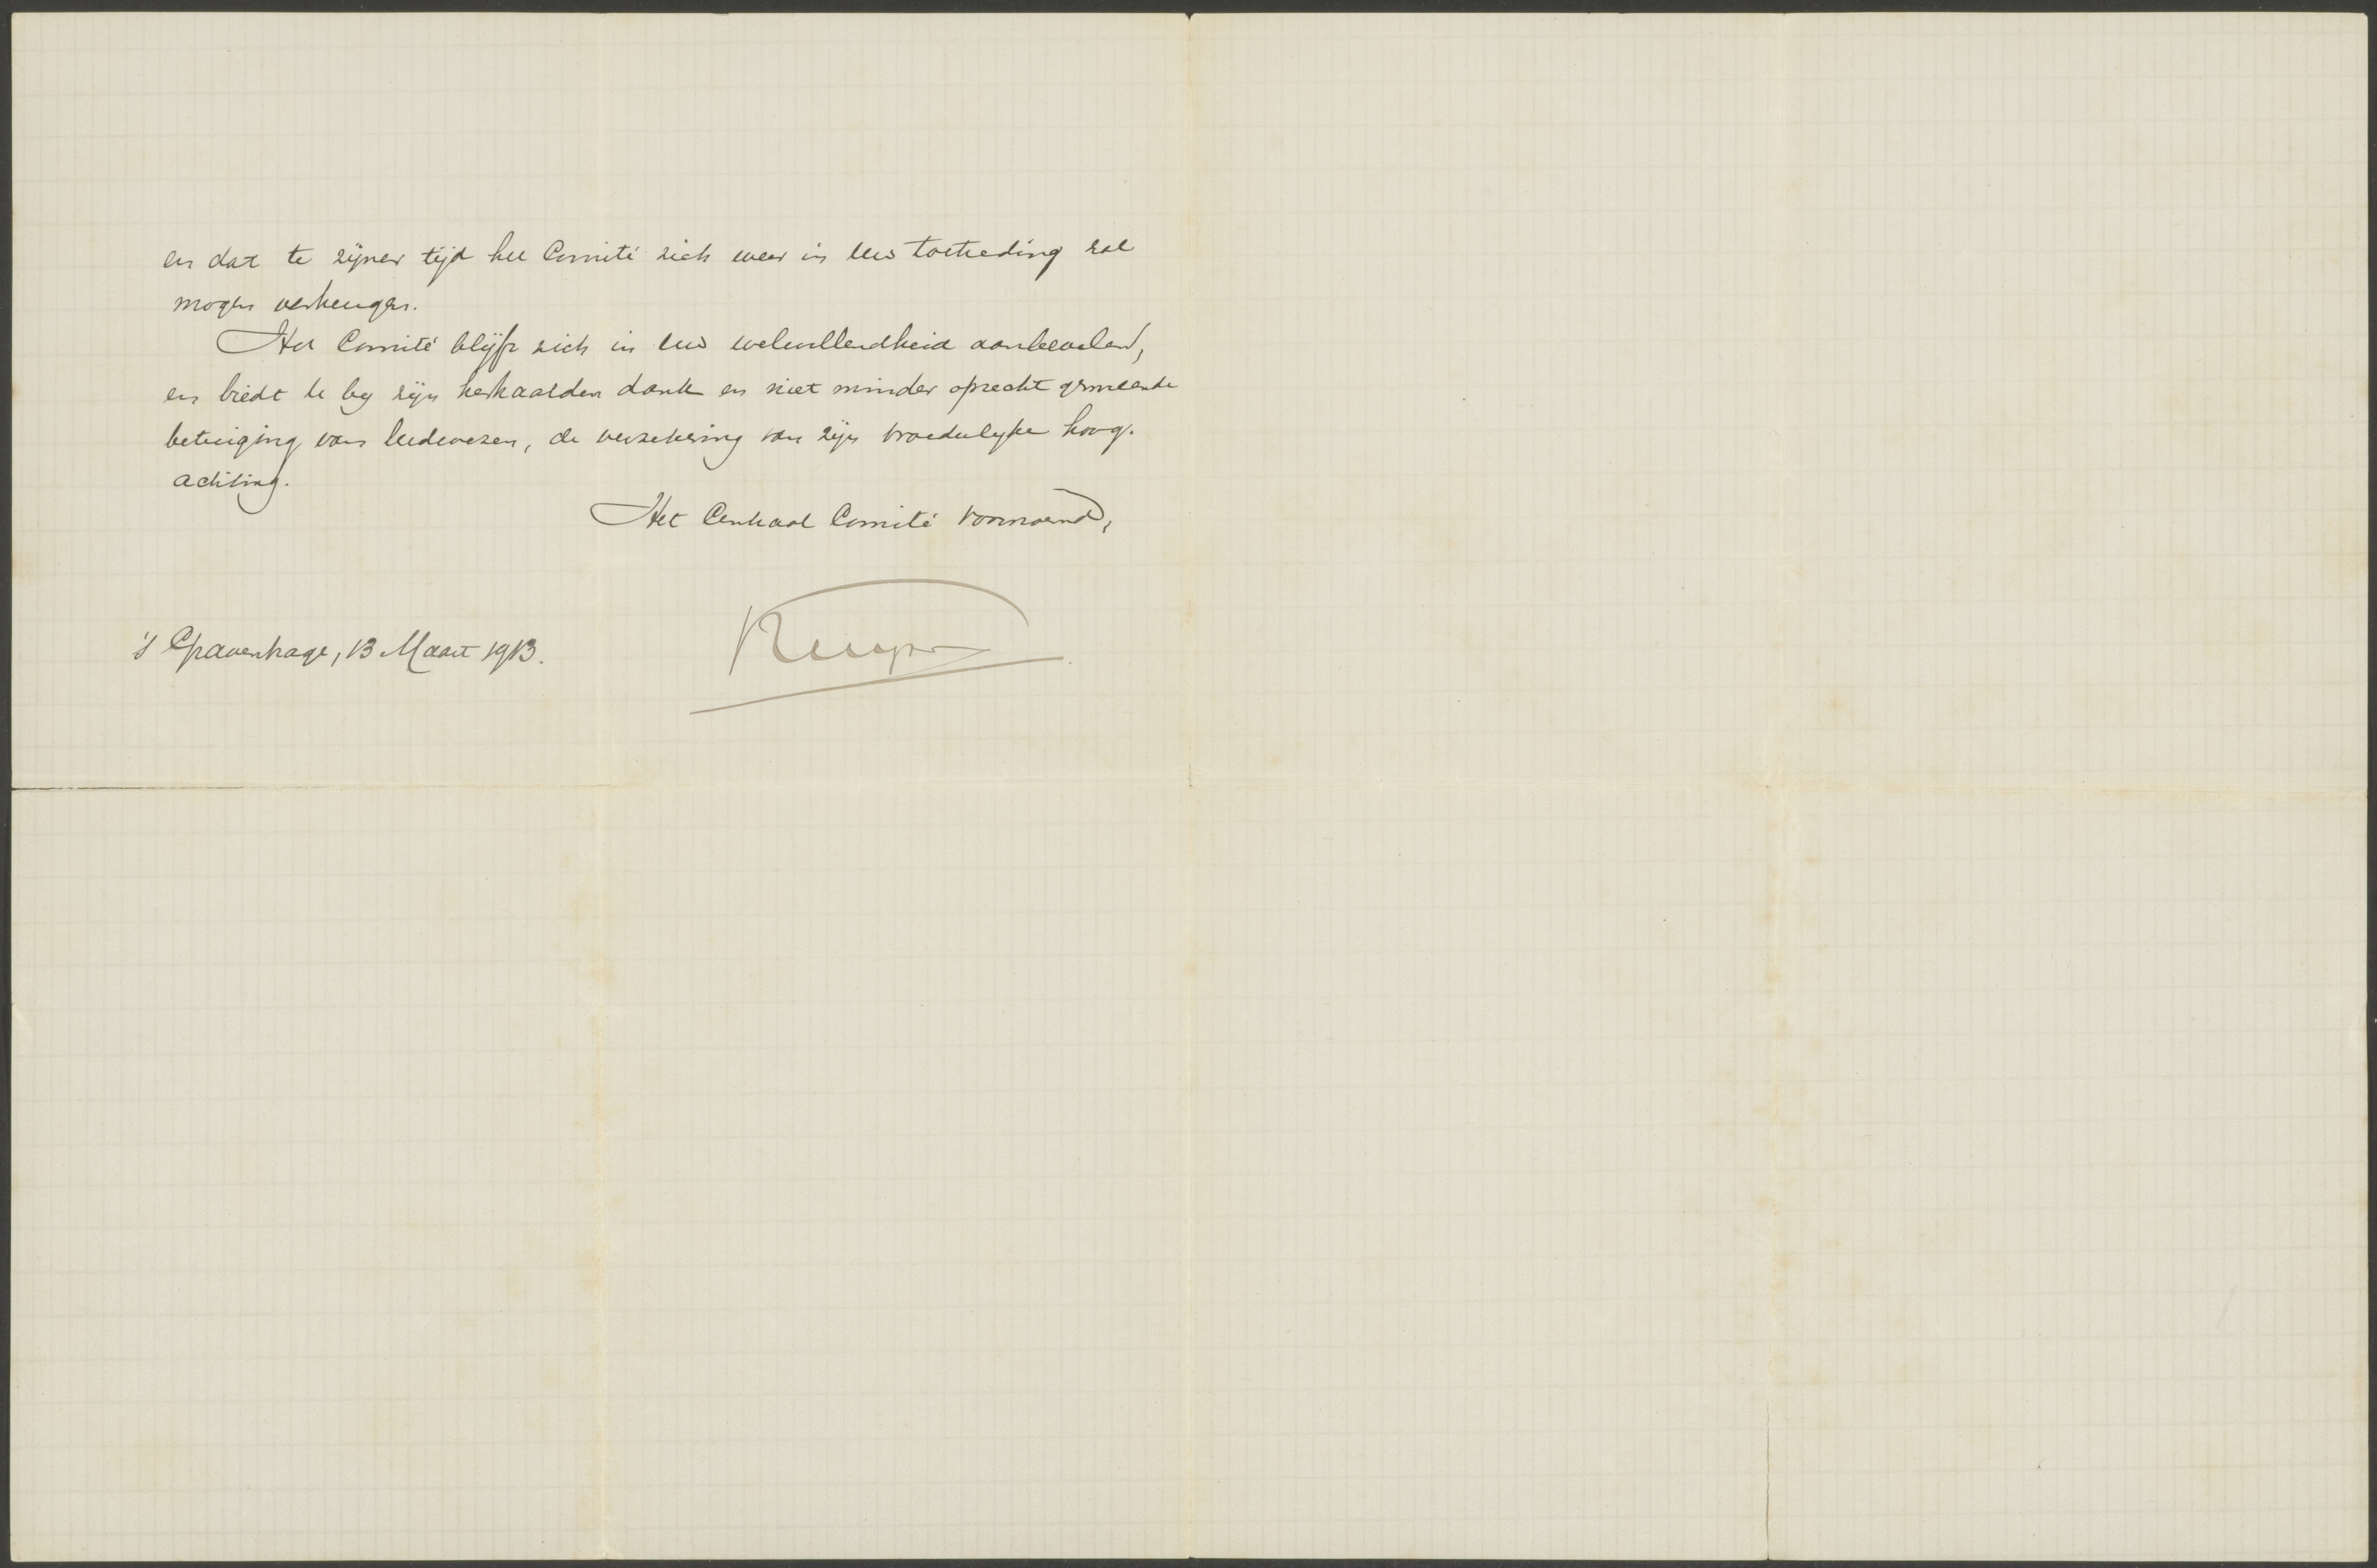 en dat te zijner tijd het Comité zich weer in Uw toetreding zal
mogen verheugen.
Het Comité blijft zich in Uw welwillendheid aanbevelen,
en biedt U bij zijn herhaalden dank en niet minder oprecht gemeende
betuiging van leedwezen, de verzekering van zijn broederlijke hoog-
achting.
Het Centraal Comité voornoemd,
's Gravenhage, 13 Maart 1913.
Kuyper